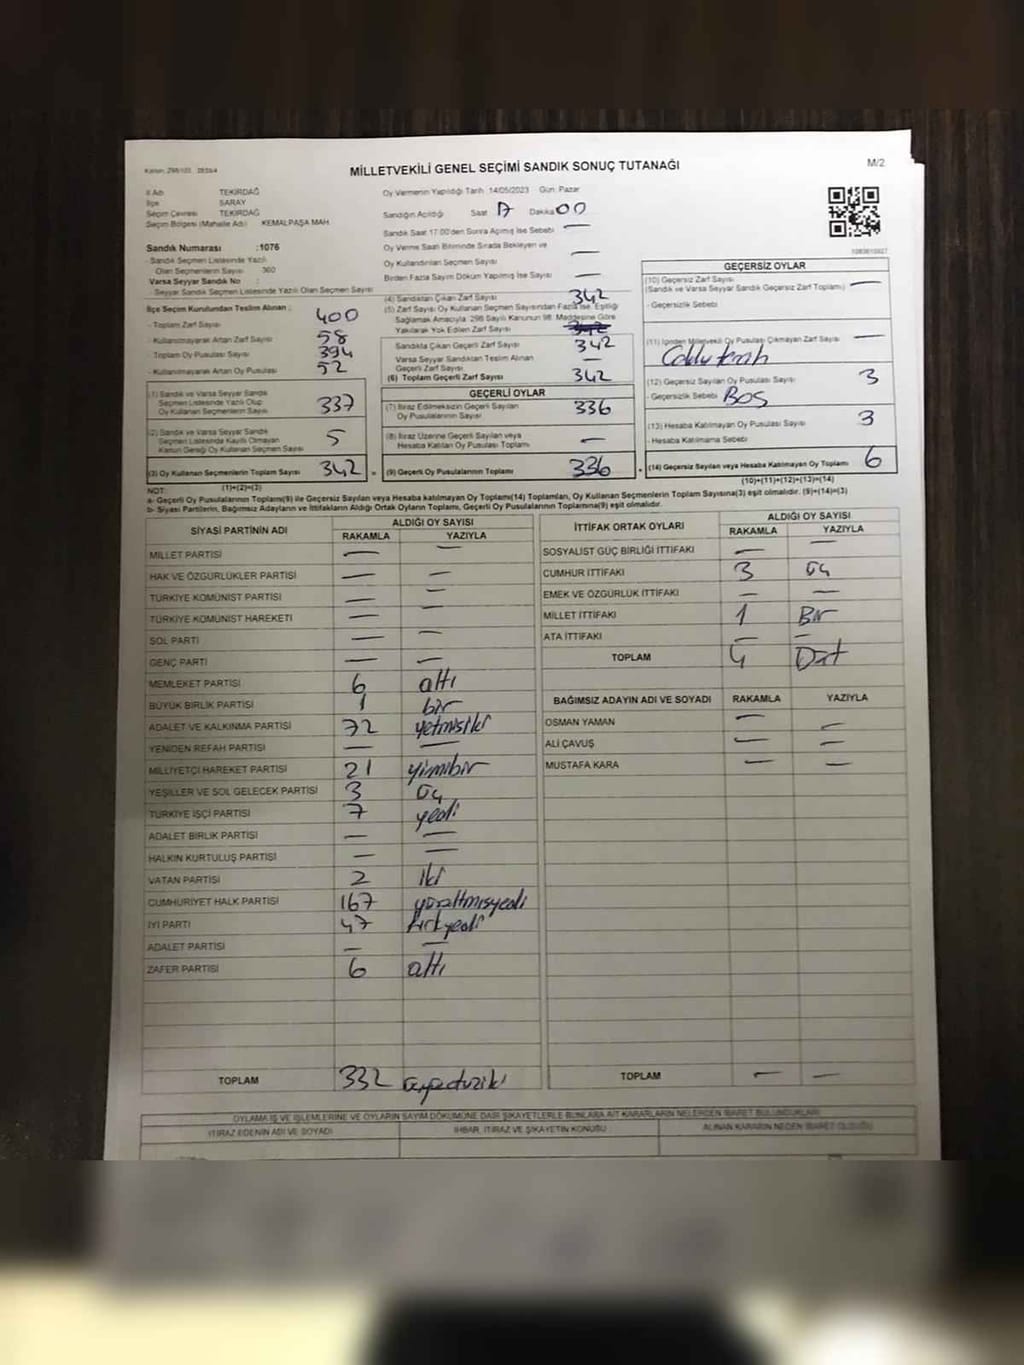 MİLLETVEKİLİ GENEL SEÇİMİ SANDIK SONUÇ TUTANAĞI
M/2
İl Adı TEKİRDAĞ
İlçe SARAY
Seçim Çevresi TEKİRDAĞ
Seçim Bölgesi (Mahalle Adı) KEMALPAŞA MAH
Sandık Numarası :1076
- Sandık Seçmen Listesinde Yazılı
Olan Seçmenlerin Sayısı 360
Varsa Seyyar Sandık No :
- Seyyar Sandık Seçmen Listesinde Yazılı Olan Seçmen Sayısı
İlçe Seçim Kurulundan Teslim Alınan :
- Toplam Zarf Sayısı 400
- Kullanılmayarak Artan Zarf Sayısı 58
- Toplam Oy Pusulası Sayısı 394
- Kullanılmayarak Artan Oy Pusulası 52
(1) Sandık ve Varsa Seyyar Sandık
Seçmen Listesinde Yazılı Olup
Oy Kullanan Seçmenlerin Sayısı 337
(2) Sandık ve Varsa Seyyar Sandık
Seçmen Listesinde Kayıtlı Olmayan
Kanun Gereği Oy Kullanan Seçmen Sayısı 5
(3) Oy Kullanan Seçmenlerin Toplam Sayısı 342
(1)+(2)=(3)
Oy Vermenin Yapıldığı Tarih :14/05/2023 Gün: Pazar
Sandığın Açıldığı Saat 17 Dakika 00
Sandık Saat 17:00'den Sonra Açılmış İse Sebebi —
Oy Verme Saati Bitiminde Sırada Bekleyen ve
Oy Kullandırılan Seçmen Sayısı —
Birden Fazla Sayım Döküm Yapılmış İse Sayısı —
(4) Sandıktan Çıkan Zarf Sayısı 342
(5) Zarf Sayısı Oy Kullanan Seçmen Sayısından Fazla İse, Eşitliği
Sağlamak Amacıyla 298 Sayılı Kanunun 98. Maddesine Göre
Yakılarak Yok Edilen Zarf Sayısı
Sandıkta Çıkan Geçerli Zarf Sayısı 342
Varsa Seyyar Sandıktan Teslim Alınan
Geçerli Zarf Sayısı —
(6) Toplam Geçerli Zarf Sayısı 342
GEÇERLİ OYLAR
(7) İtiraz Edilmeksizin Geçerli Sayılan
Oy Pusulalarının Sayısı 336
(8) İtiraz Üzerine Geçerli Sayılan veya
Hesaba Katılan Oy Pusulası Toplamı —
(9) Geçerli Oy Pusulalarının Toplamı 336
GEÇERSİZ OYLAR
(10) Geçersiz Zarf Sayısı
(Sandık ve Varsa Seyyar Sandık Geçersiz Zarf Toplamı) —
- Geçersizlik Sebebi
(11) İçinden Milletvekili Oy Pusulası Çıkmayan Zarf Sayısı —
(12) Geçersiz Sayılan Oy Pusulası Sayısı 3
- Geçersizlik Sebebi Boş
(13) Hesaba Katılmayan Oy Pusulası Sayısı 3
- Hesaba Katılmama Sebebi
(14) Geçersiz Sayılan veya Hesaba Katılmayan Oy Toplamı 6
(10)+(11)+(12)+(13)=(14)
NOT:
a- Geçerli Oy Pusulalarının Toplamı(9) ile Geçersiz Sayılan veya Hesaba katılmayan Oy Toplamı(14) Toplamları, Oy Kullanan Seçmenlerin Toplam Sayısına(3) eşit olmalıdır. (9)+(14)=(3)
b- Siyasi Partilerin, Bağımsız Adayların ve İttifakların Aldığı Ortak Oyların Toplamı, Geçerli Oy Pusulalarının Toplamına(9) eşit olmalıdır.
SİYASİ PARTİNİN ADI ALDIĞI OY SAYISI
RAKAMLA YAZIYLA
MİLLET PARTİSİ — —
HAK VE ÖZGÜRLÜKLER PARTİSİ — —
TÜRKİYE KOMÜNİST PARTİSİ — —
TÜRKİYE KOMÜNİST HAREKETİ — —
SOL PARTİ — —
GENÇ PARTİ — —
MEMLEKET PARTİSİ 6 altı
BÜYÜK BİRLİK PARTİSİ 1 bir
ADALET VE KALKINMA PARTİSİ 72 yetmişiki
YENİDEN REFAH PARTİSİ — —
MİLLİYETÇİ HAREKET PARTİSİ 21 yirmibir
YEŞİLLER VE SOL GELECEK PARTİSİ 3 üç
TÜRKİYE İŞÇİ PARTİSİ 7 yedi
ADALET BİRLİK PARTİSİ — —
HALKIN KURTULUŞ PARTİSİ — —
VATAN PARTİSİ 2 iki
CUMHURİYET HALK PARTİSİ 167 yüzaltmışyedi
İYİ PARTİ 47 kırkyedi
ADALET PARTİSİ — —
ZAFER PARTİSİ 6 altı
TOPLAM 332
İTTİFAK ORTAK OYLARI ALDIĞI OY SAYISI
RAKAMLA YAZIYLA
SOSYALİST GÜÇ BİRLİĞİ İTTİFAKI — —
CUMHUR İTTİFAKI 3 üç
EMEK VE ÖZGÜRLÜK İTTİFAKI — —
MİLLET İTTİFAKI 1 Bir
ATA İTTİFAKI — —
TOPLAM 4 Dört
BAĞIMSIZ ADAYIN ADI VE SOYADI RAKAMLA YAZIYLA
OSMAN YAMAN — —
ALİ ÇAVUŞ — —
MUSTAFA KARA — —
TOPLAM — —
OYLAMA İŞ VE İŞLEMLERİNE VE OYLARIN SAYIM DÖKÜMÜNE DAİR ŞİKAYETLERLE BUNLARA AİT KARARLARIN NELERDEN İBARET BULUNDUKLARI
İTİRAZ EDENİN ADI VE SOYADI İHBAR, İTİRAZ VE ŞİKAYETİN KONUSU ALINAN KARARIN NEDEN İBARET OLDUĞU